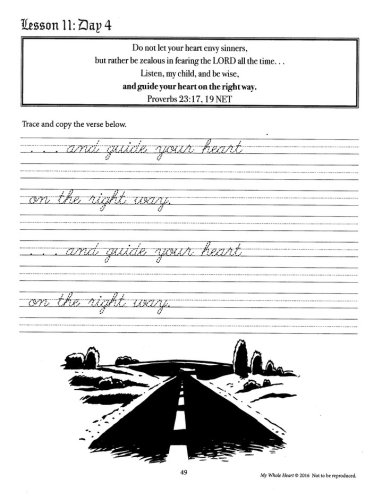 Lesson 11: Day 4
Do not let your heart envy sinners,
but rather be zealous in fearing the LORD all the time. . .
Listen, my child, and be wise,
and guide your heart on the right way.
Proverbs 23:17, 19 NET
Trace and copy the verse below.
. . . . and guide your heart
on the right way.
. . . . and guide your heart
on the right way.
49
My Whole Heart © 2016 Not to be reproduced.